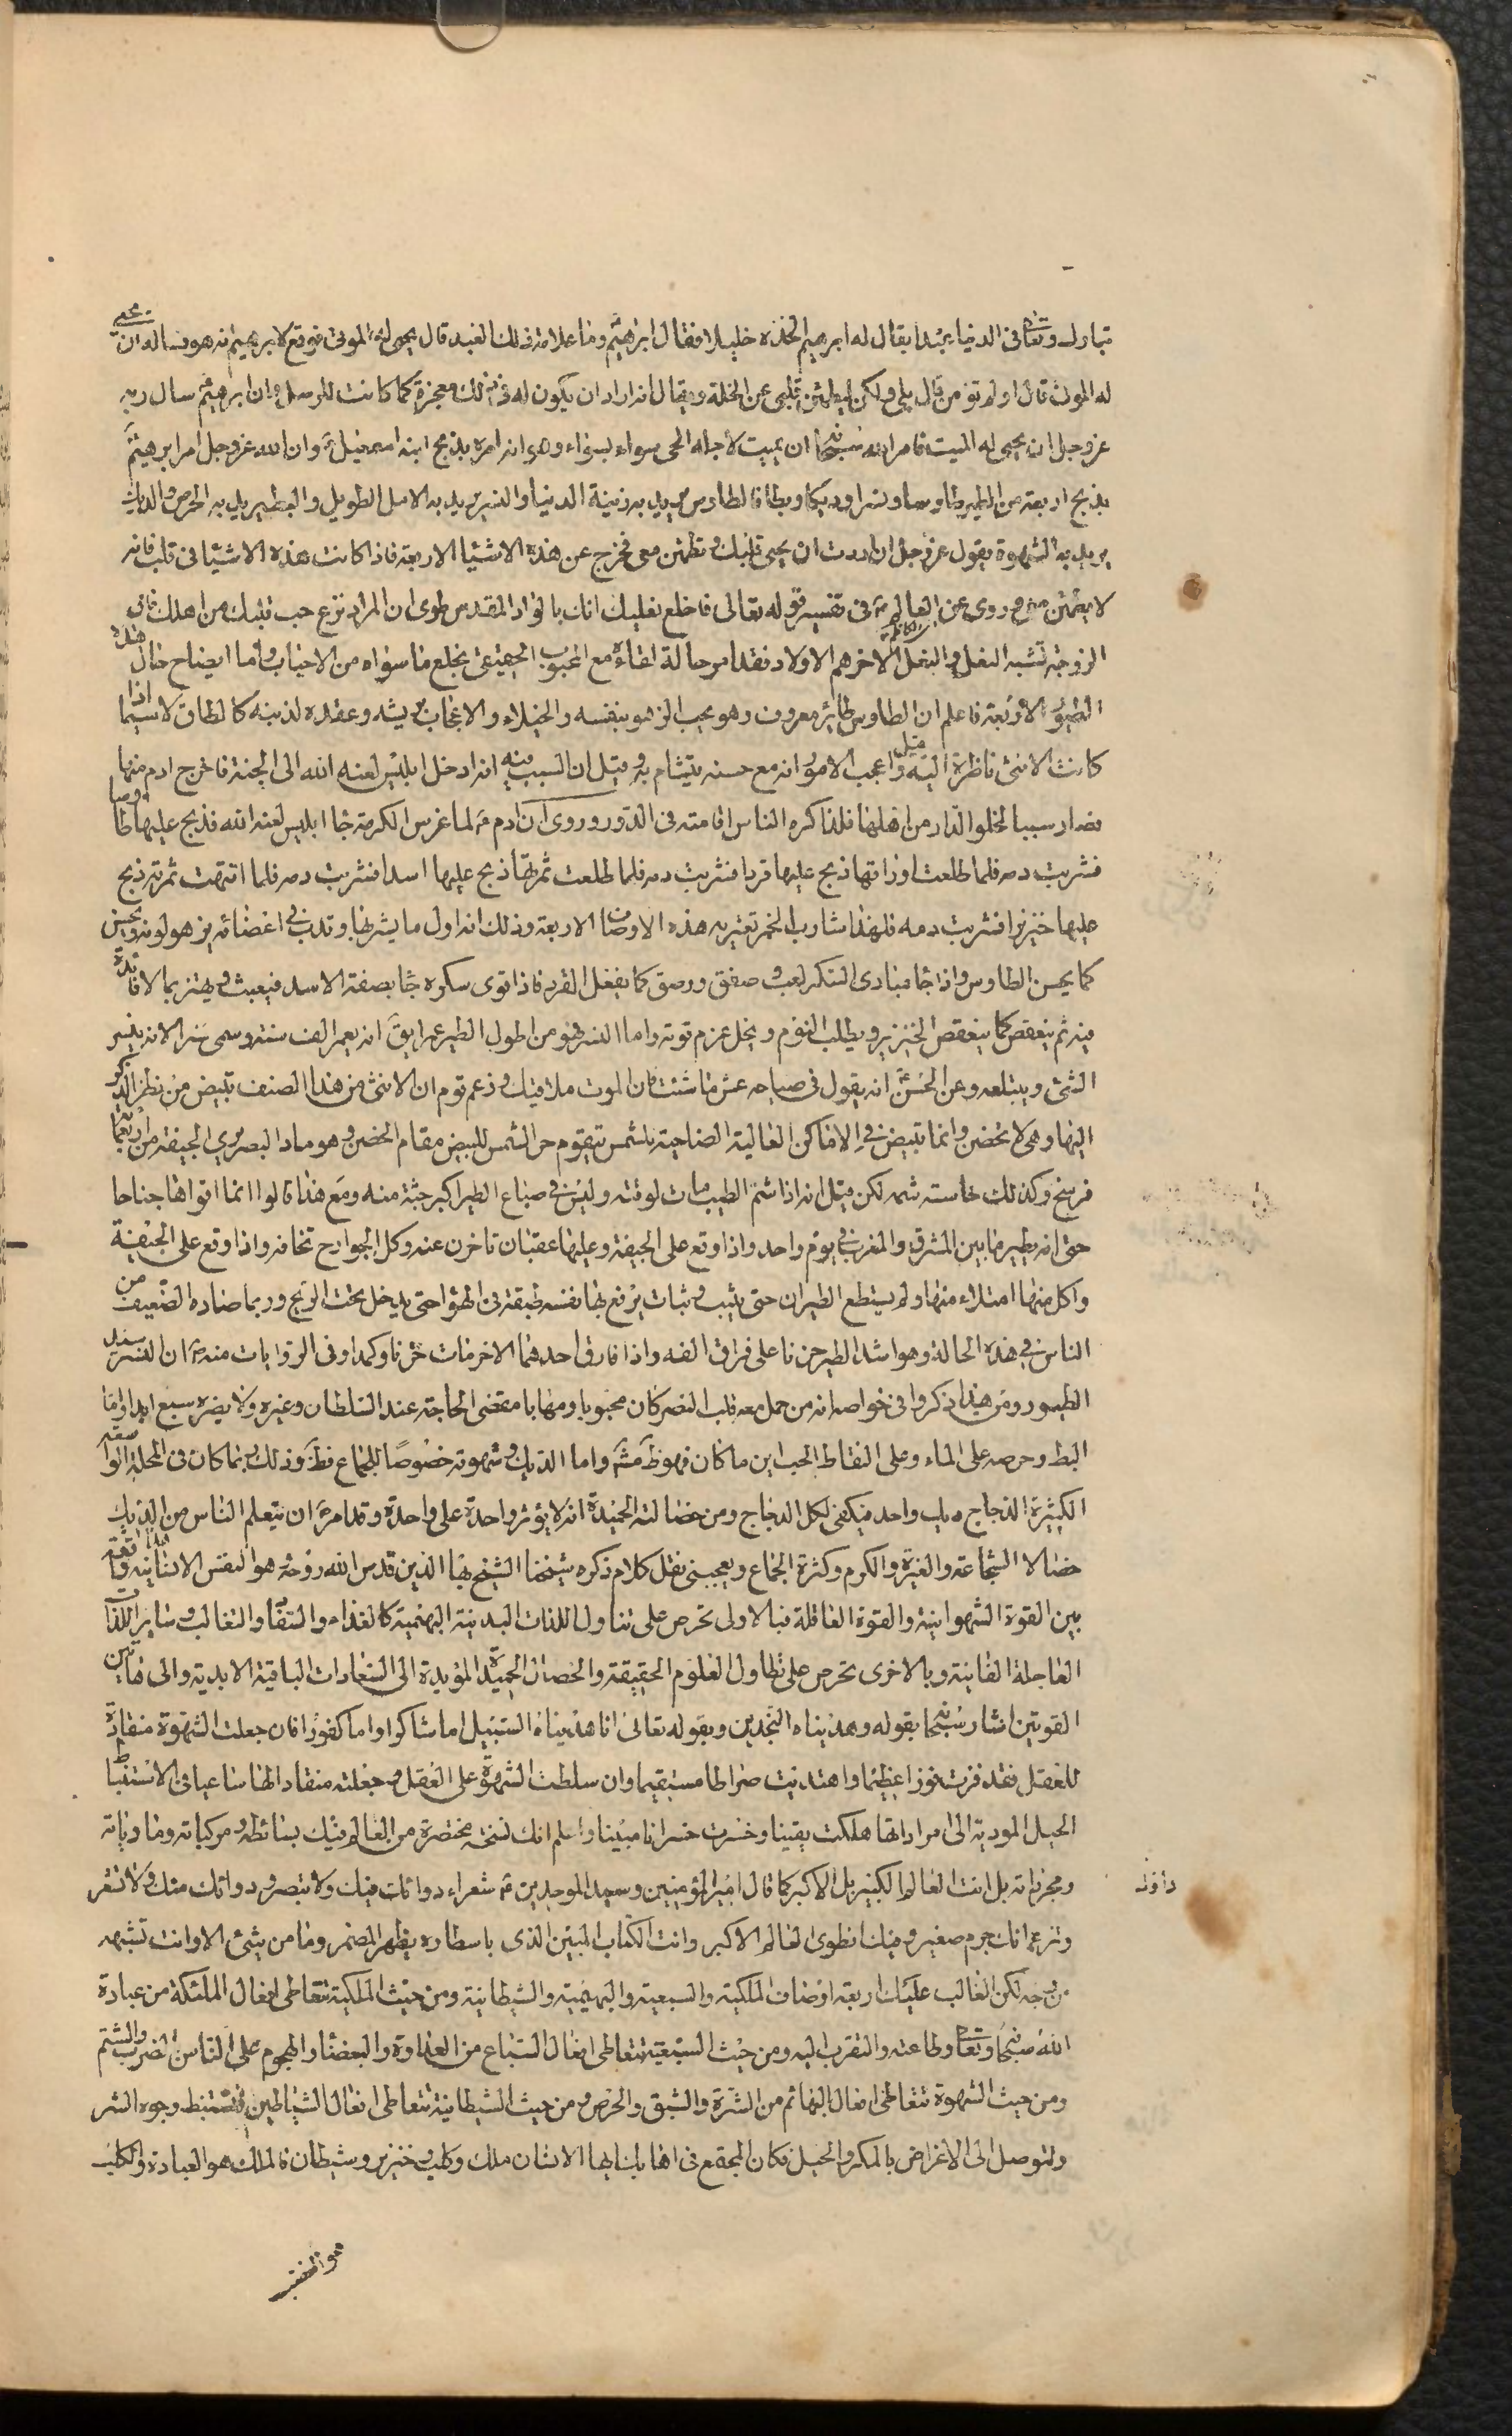 تبارك وتعا فى الدنيا عبدا يقال له ابرهيم اتخذه خليلا فقال ابرهيم وما علامة ذلك العبد قال يحيى له الموتى فوقع لابرهيم انه هو فساله ان يحيى
له الموتى قال اولم تؤمن قال بلى ولكن ليطمئن قلبى عن الخلة ويقال انه اراد ان يكون له فى ذلك معجزة كما كانت للرسل وان ابرهيم سال ربه
عز وجل ان يحيى له الميت فامر الله سبحانه ان يميت لاجله الحى سواء بسواء وهو انه امره بذبح ابنه اسمعيل وان الله عز وجل امر ابرهيم
بذبح اربعة من الطير طاوسا ونسرا وديكا وبطا فالطاوس يريد به زينة الدنيا والنسر يريد به الامل الطويل والبط يريد به الحرص والديك
يريد به الشهوة يقول عز وجل ان اردت ان يحيى قلبك وتطمئن معى فخرج عن هذه الاشيا الاربعة فاذا كانت هذه الاشيا فى قلب فانه
لا يطمئن معى وروى عن العالم فى تفسير قوله تعالى فاخلع نعليك انك بالواد المقدس طوى ان المراد نزع حب قلبك من اهلك فان
الزوجة تشبه النعل والنعل الاخر هم الاولاد فقد امر حالة لقاءه مع المحبوب الحقيقى بخلع ما سواه من الاحباب واما ايضاح حال هذه
الطيور الاربعة فاعلم ان الطاوس طائر معروف وهو يحب الزهو بنفسه والخيلاء والاعجاب بريشه وعقده لذنبه كالطاق لا سيما اذا
كانت الانثى ناظرة اليه قيل واعجب الامور انه مع حسنه يتشام به وقيل ان السبب فيه انه ادخل ابليس لعنه الله الى الجنة فاخرج ادم منها
فصار سببا لخلو الدار من اهلها فلذا كره الناس اقامته فى الدور وروى ان ادم لما غرس الكرمة جا ابليس لعنه الله فذبح عليها طاوسا
فشربت دمه فلما طلعت اوراقها ذبح عليها قردا فشربت دمه فلما طلعت ثمرتها ذبح عليها اسدا فشربت دمه فلما انتهت ثمرته ذبح
عليها خنزيرا فشربت دمه فلهذا شارب الخمر تعتريه هذه الاوصاف الاربعة وذلك انه اول ما يشربها وتدب فى اعضائه يزهو لونه ويحسن
كما يحسن الطاوس واذا جا مبادى السكر لعب وصفق ورقص كما يفعل القرد فاذا قوى سكره جا بصفة الاسد فيعبث ويهتز بما لا فائدة
فيه ثم ينعقص كما ينعقص الخنزير ويطلب النوم وينحل عزم قوته واما النسر فهو من اطول الطير عمرا يق انه يعمر الف سنة وسمى نسرا لانه ينسر
الشئ ويبتلعه وعن الحسن انه يقول فى صياحه عش ما شئت فان الموت ملاقيك وزعم قوم ان الانثى من هذا الصنف تبيض من نظر الذكر
اليها وهى لا تحضن وانما تبيض فى الاماكن العالية الضاحية للشمس فيقوم حر الشمس للبيض مقام الحضن وهو حاد البصر يرى الجيفة من اربعمائة
فرسخ وكذلك حاسته شمه لكن قيل انه اذا شم الطيب مات لوقته وليس فى سباع الطير اكبر جثة منه ومع هذا قالوا انما اقواها جناحا
حتى انه يطير ما بين المشرق والمغرب فى يوم واحد واذا وقع على الجيفة وعليها عقبان تاخرن عنه وكل الجوارح تخافه واذا وقع على الجيفة
واكل منها امتلاء منها ولم يستطع الطيران حتى يثب وثبات يرفع بها نفسه طبقة فى الهوا حتى يدخل تحت الريح وربما صاده الضعيف من
الناس فى هذه الحالة وهو اشد الطير حزنا على فراق الفه واذا فارق احدهما الاخر مات حزنا وكمدا وفى الروايات منه ان النسر سيد
الطيور ومن هيبه ذكروا فى خواصه انه من حمل معه قلب النسر كان محبوبا ومهابا مقضى الحاجة عند السلطان وغيره ولا يضره سبع ابدا واما
البط وحرصه على الماء وعلى التقاط الحب اين ما كان فهو ظ مش واما الديك وشهوته خصوصا للجماع فظ وذلك ربما كان فى المحلة الواسعة
الكثيرة الدجاج ديك واحد فيكفى لكل الدجاج ومن خصالته الحميدة انه لا يؤثر واحدة على واحدة وقد امر ان يتعلم الناس من الديك
خصالا الشجاعة والغيرة والكرم وكثرة الجماع ويعجبنى نقل كلام ذكره شيخنا الشيخ بها الدين قدس الله روحه هو النفس الانسانية واقعة
بين القوة الشهوانية والقوة العاقلة فبالاولى تحرص على تناول اللذات البدنية البهيمية كالغذاء والسفاد والتغالب وساير اللذات
العاجلة الفانية وبالاخرى تحرص على تطاول العلوم الحقيقة والخصال الحميدة المؤيدة الى السعادات الباقية الابدية والى هاتين
القوتين اشار سبحانه بقوله وهديناه النجدين وبقوله تعالى انا هديناه السبيل اما شاكرا واما كفورا فان جعلت الشهوة منقادة
للعقل فقد فزت فوزا عظيما واهتديت صراطا مستقيما وان سلطت الشهوة على العقل وجعلته منقادا لها ساعيا فى الاستنباط
الحيل المودية الى مراداتها هلكت يقينا وخسرت خسرانا مبينا واعلم انك نسخة مختصرة من العالم فيك بسائطه ومركباته ومادياته
ومجرداته بل انت العالم الكبير بل الاكبر كما قال امير المؤمنين وسيد الموحدين شعرا دوائك فيك ولا تبصر ودوائك منك ولا تشعر
وتزعم انك جرم صغير وفيك انطوى العالم الاكبر وانت الكتاب المبين الذى باسطاره يظهر المضمر وما من شئ الا وانت تشبهه
من وجه لكن الغالب عليك اربعة اوصاف الملكية والسبعية والبهيمية والشيطانية ومن حيث الملكية تتعاطى افعال الملئكة من عبادة
الله سبحانه وتعا وطاعته والتقرب اليه ومن حيث السبعية تتعاطى افعال السباع من العداوة والبغضا والهجوم على الناس بالضرب والشتم
ومن حيث الشهوة تتعاطى افعال البهائم من الشره والشبق والحرص ومن حيث الشيطانية تتعاطى افعال الشياطين فتستنبط وجوه الشر
وتتوصل الى الاغراض بالمكر والحيل فكان المجتمع فى اهابك ايها الانسان ملك وكلب وخنزير وشيطان فالملك هو العبادة والكلب
هو الغضب